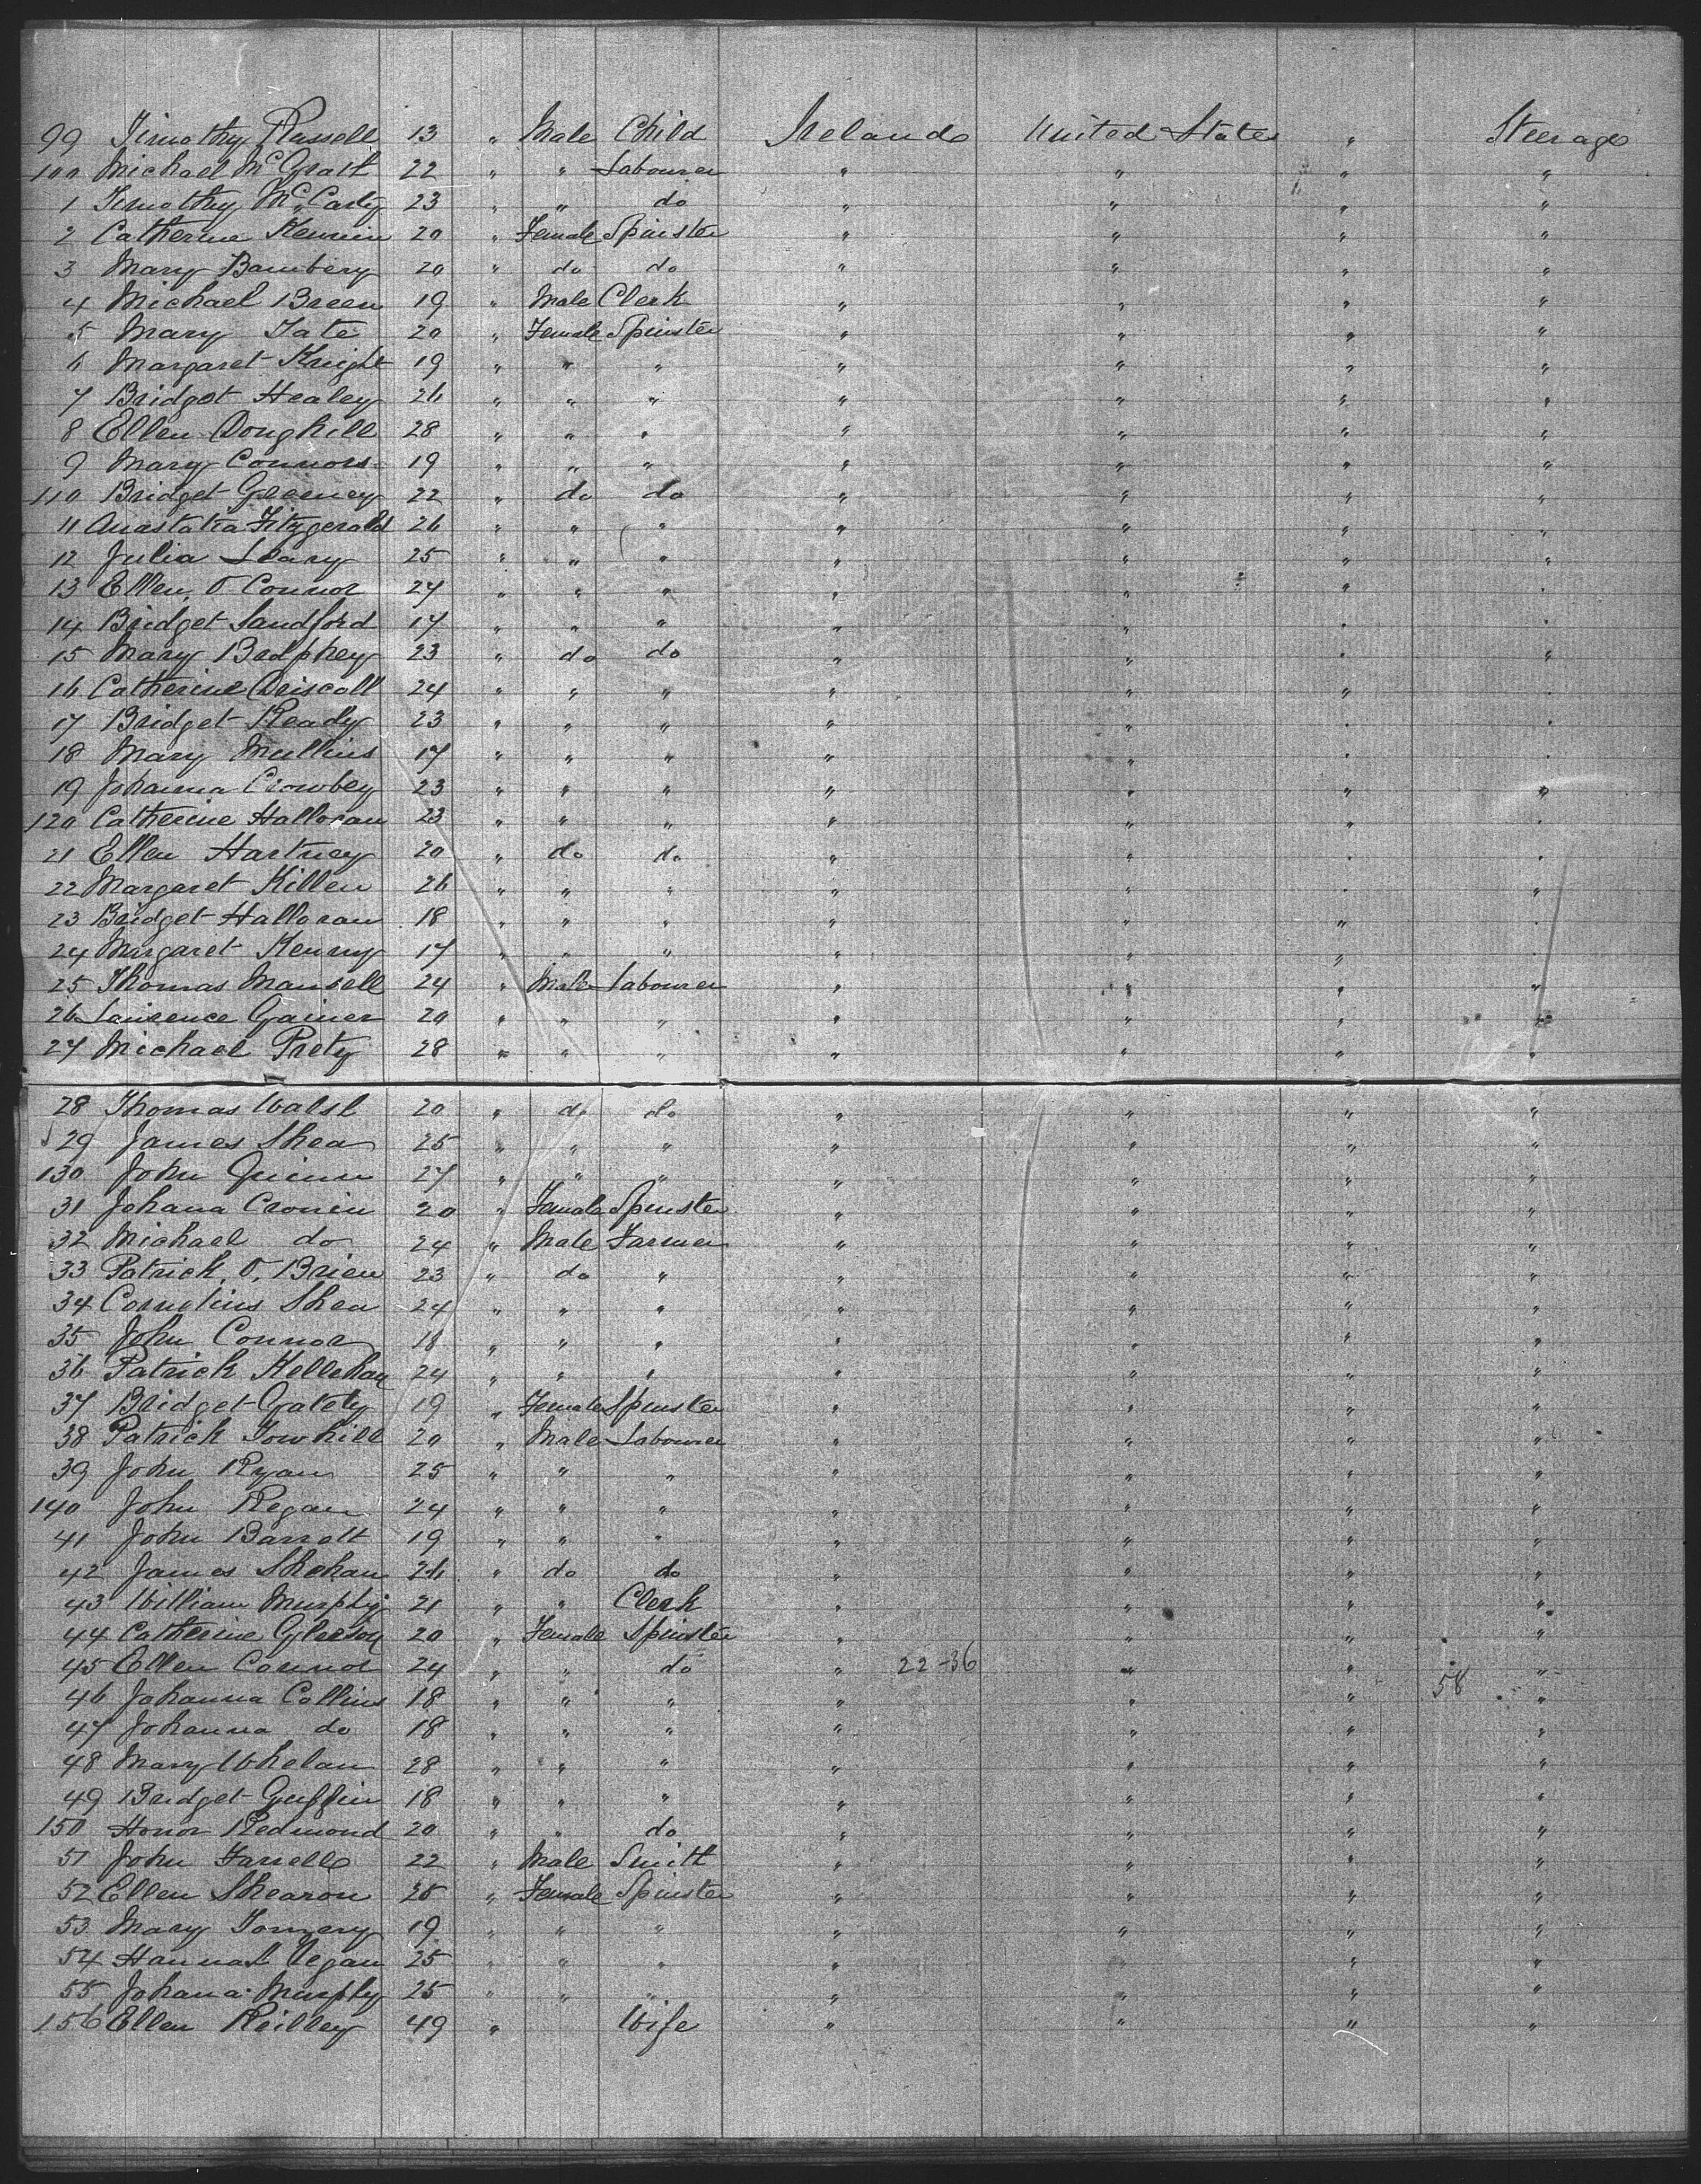 99 Timothy Russell 13 " Male Child Ireland United States " Steerage
100 Michael McGrath 22 " " Labourer " " " "
1 Timothy McCarty 23 " " do " " " "
2 Catherine 20 " Female Spinster " " " "
3 Mary Bambery 20 " do do " " " "
4 Michael Breen 19 " Male Clerk " " " "
5 Mary Tate 20 " Female Spinster " " " "
6 Margaret Knight 19 " " " " " " "
7 Bridget Healey 26 " " " " " " "
8 Ellen Doughill 28 " " " " " " "
9 Mary Connors 19 " " " " " " "
110 Bridget Greeney 22 " do do " " " "
11 Anastatia Fitzgerald 26 " " " " " " "
12 Julia Leary 25 " " " " " " "
13 Ellen O Connor 24 " " " " " " "
14 Bridget Sandford 17 " " " " " " "
15 Mary 23 " do do " " " "
16 Catherine Driscoll 24 " " " " " " "
17 Bridget Ready 23 " " " " " " "
18 Mary Mullins 17 " " " " " " "
19 Johanna Crowbey 23 " " " " " " "
120 Catherine Halloran 23 " " " " " " "
21 Ellen Hartney 20 " do do " " " "
22 Margaret Killen 26 " " " " " " "
23 Bridget Halloran 18 " " " " " " "
24 Margaret Kenny 17 " " " " " " "
25 Thomas Mansell 24 " Male Labourer " " " "
26 Laurence Gainer 20 " " " " " " "
27 Michael Prety 28 " " " " " " "
28 Thomas Walsh 20 " do do " " " "
29 James Shea 25 " " " " " " "
130 John Quinn 27 " " " " " " "
31 Johana Cronin 20 " Female Spinster " " " "
32 Michael do 24 " Male Farmer " " " "
33 Patrick O, Brien 23 " do " " " " "
34 Cornelius Shea 24 " " " " " " "
35 John Connor 18 " " " " " " "
36 Patrick Kellehan 24 " " " " " " "
37 Bridget Gatety 19 " Female Spinster " " " "
38 Patrick Towhill 20 " Male Labourer " " " "
39 John Ryan 25 " " " " " " "
140 John Regan 24 " " " " " " "
41 John Barrett 19 " " " " " " "
42 James Shehan 26 " do do " " " "
43 William Murphy 21 " " Clerk " " " "
44 Catherine Gleeson 20 " Female Spinster " " " "
45 Ellen Connor 24 " " do " 22-36 " " "
46 Johanna Collins 18 " " " " " " 58 "
47 Johanna do 18 " " " " " " "
48 Mary Whelan 28 " " " " " " "
49 Bridget Griffin 18 " " " " " " "
150 Honor Redmond 20 " " do " " " "
51 John Farrell 22 " Male Smith " " " "
52 Ellen Shearon 25 " Female Spinster " " " "
53 Mary 19 " " " " " " "
54 Hannah 25 " " " " " " "
55 Johana Murphy 25 " " " " " " "
156 Ellen Reilley 49 " Wife " " " "